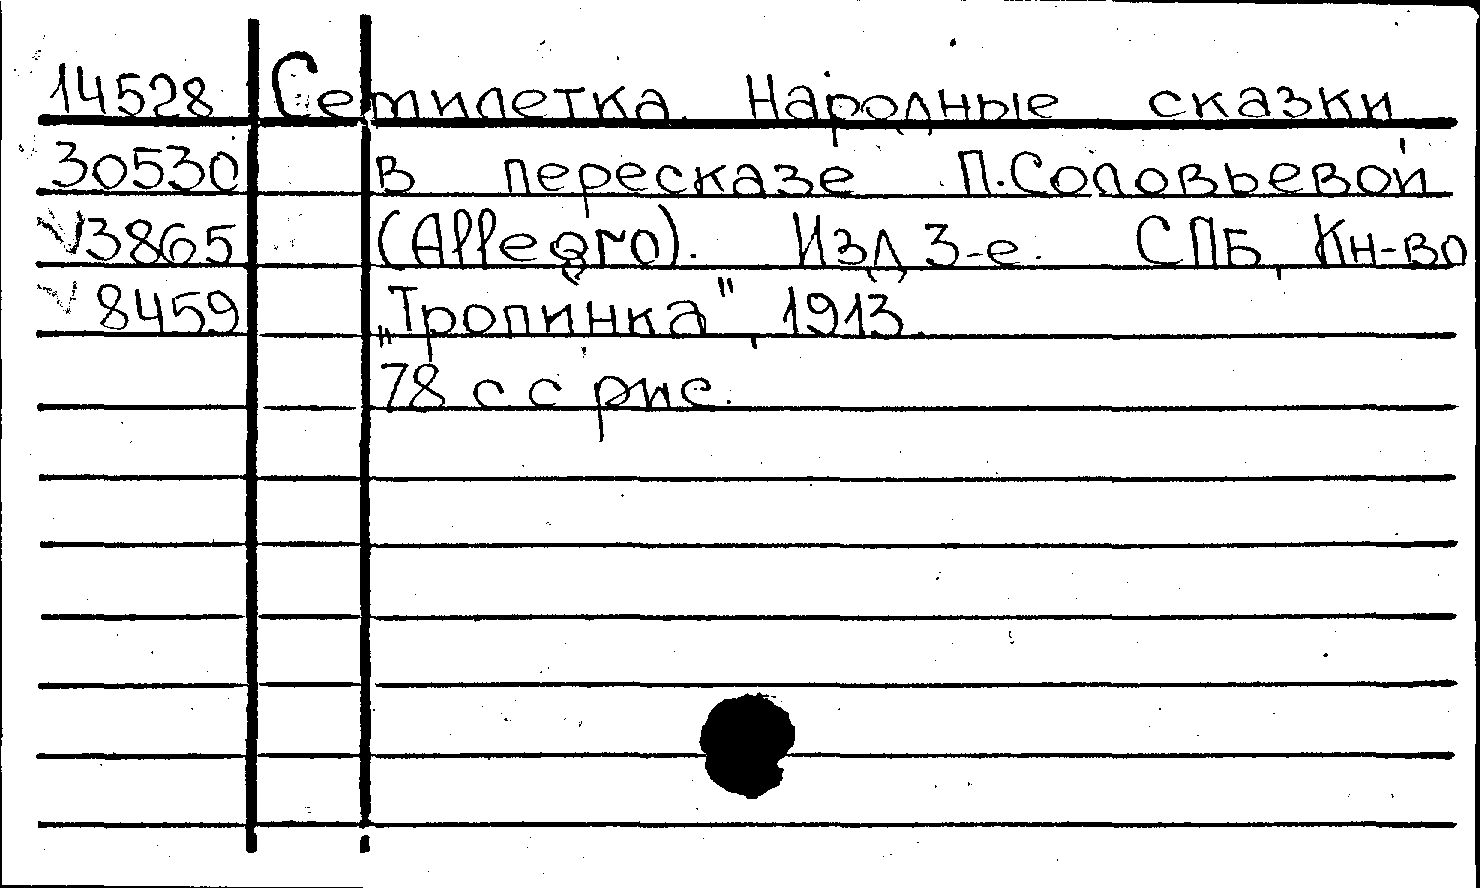 14528 Семилетка. Народные сказки
30530 в пересказе П.Соловьевой
V3865 (Allegro). Изд 3-е. СПБ, Кн-во
V 8459 „Тропинка", 1913.
78 с с рис.